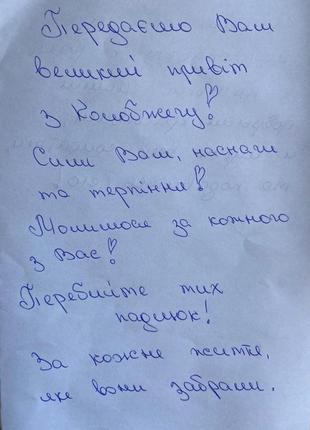 Передаємо Вам
великий привіт
з Колобжегу!
Сили Вам, наснаги
та терпіння!
Молимося за кожного
з Вас!
Перебийте тих
падлюк!
За кожне життя,
яке вони забрали.